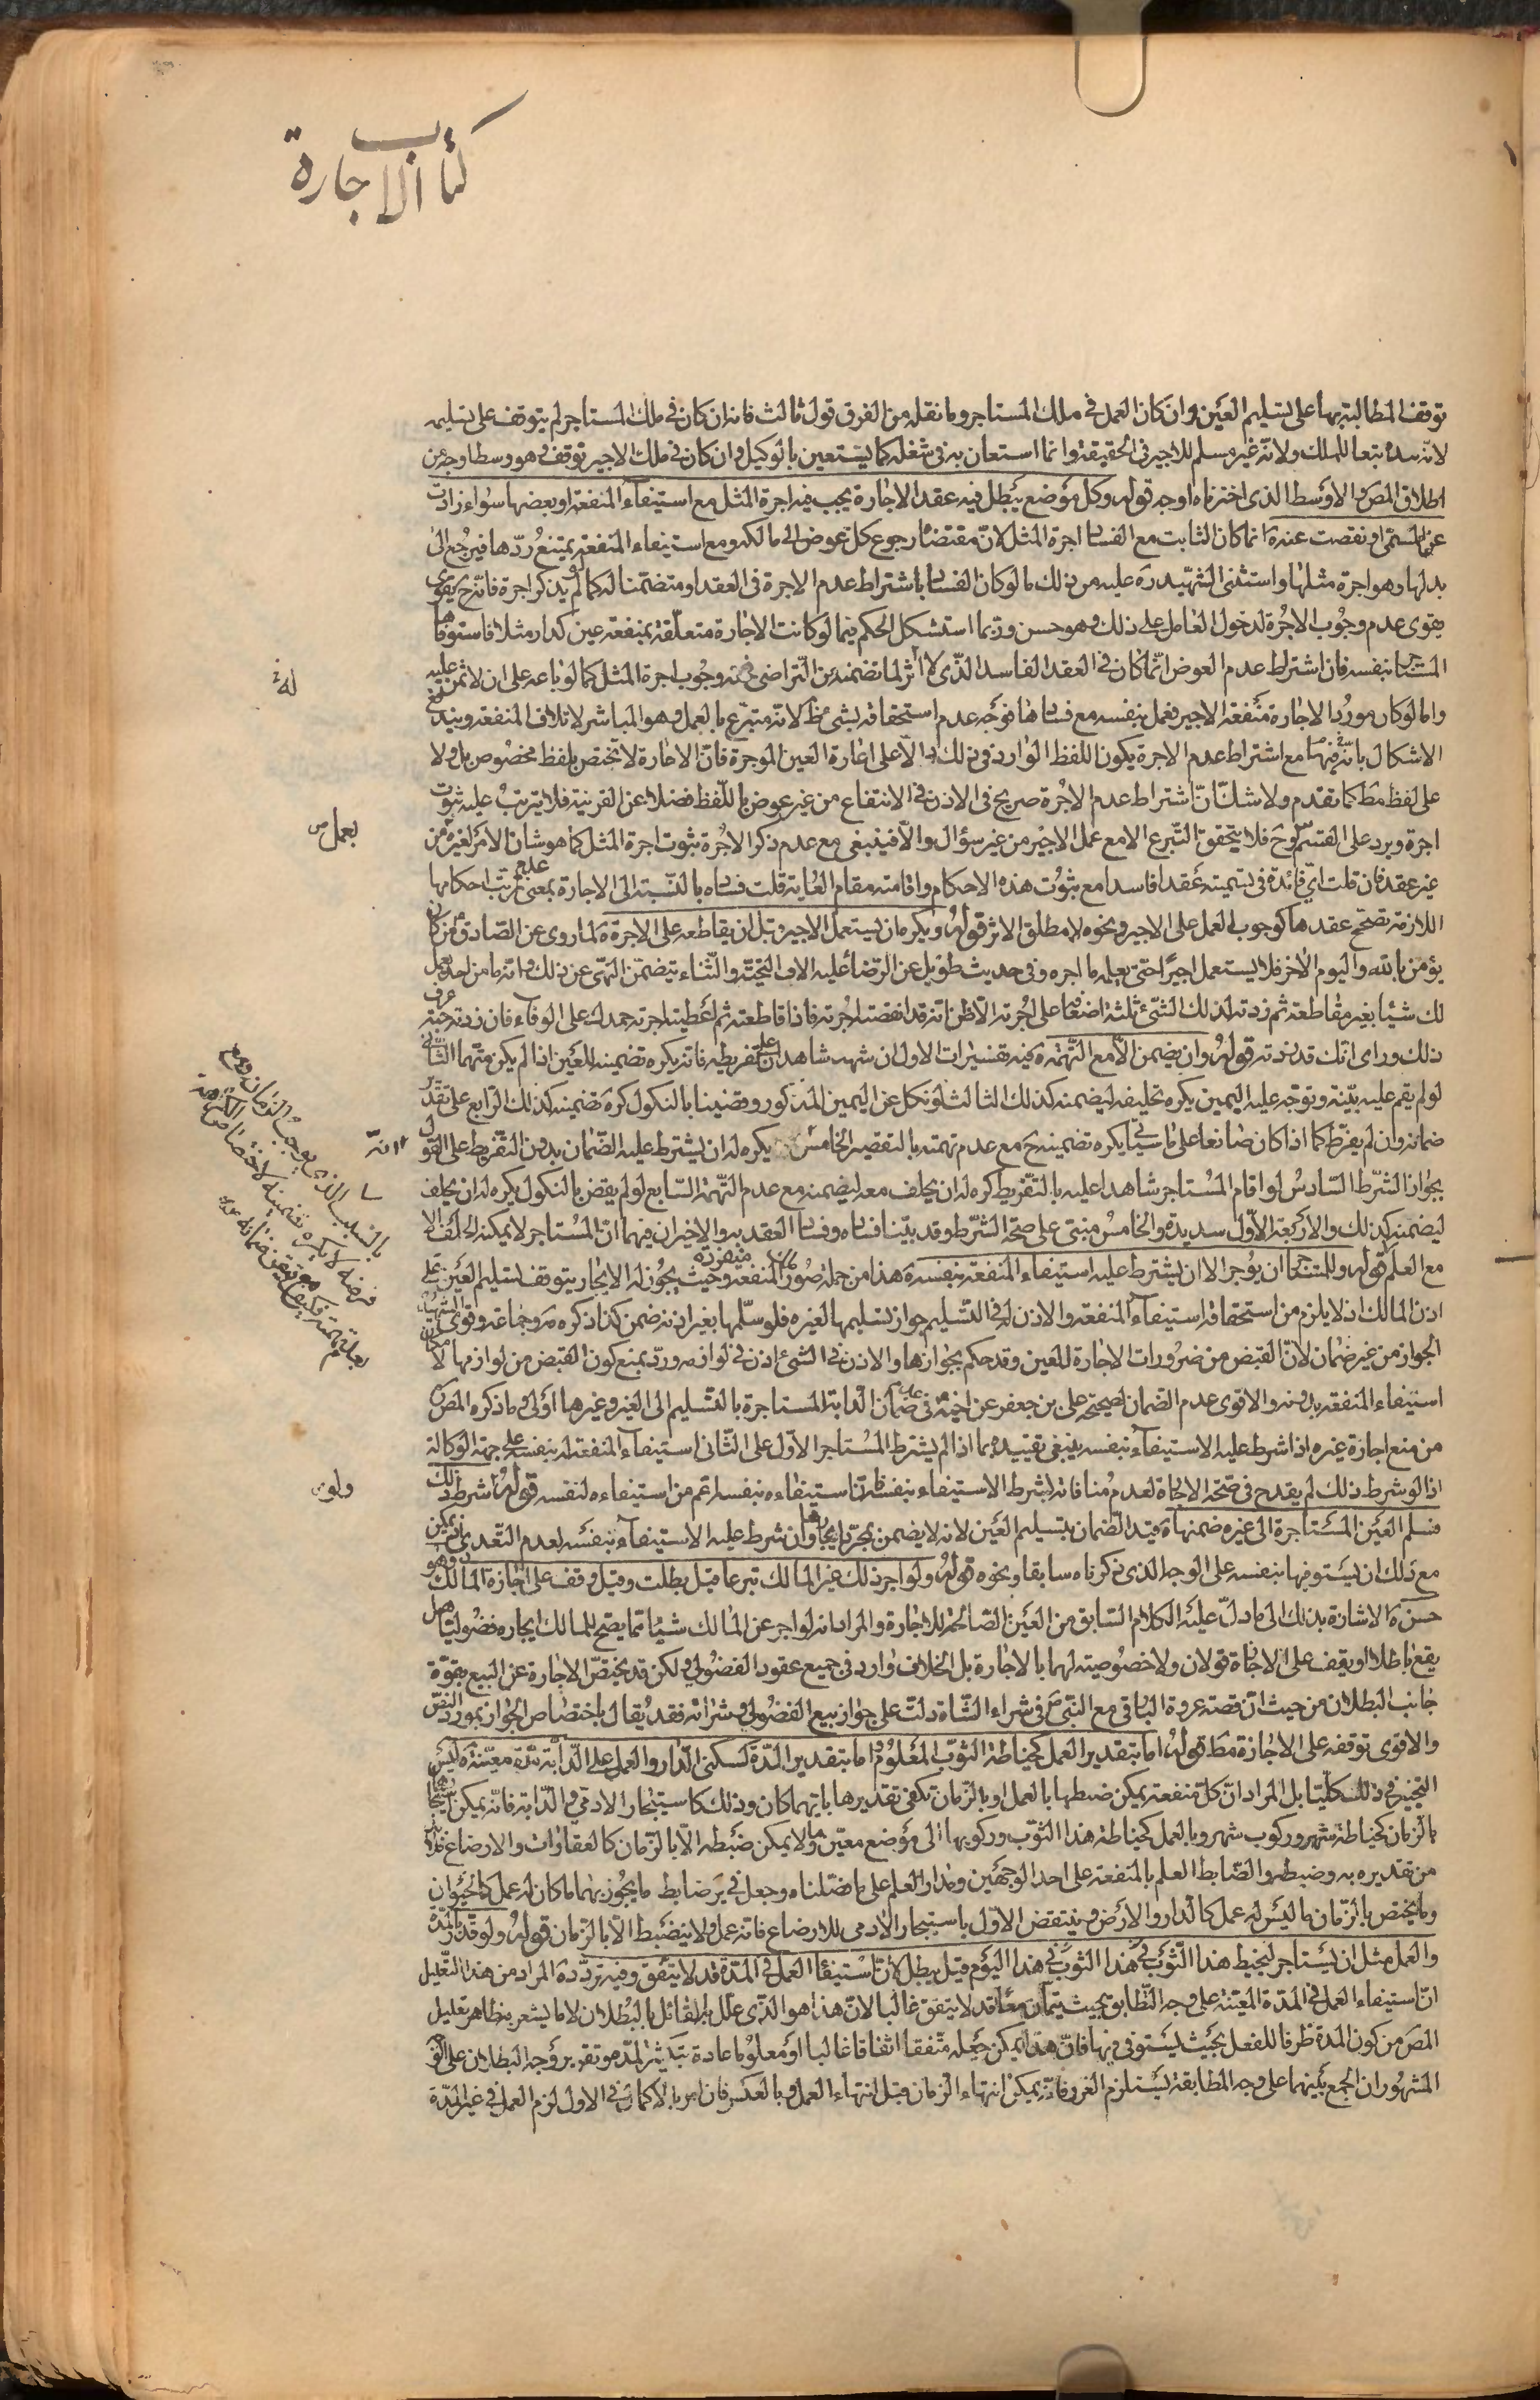 كتاب الاجارة
توقف المطالبة بها على تسليم العين وان كان العمل في ملك المستاجر وما نقله من الفرق قول ثالث فانه ان كان في ملك المستاجر لم يتوقف على تسليمه
لانه بيده تبعا للملك ولانه غير مسلم للاجير في الحقيقة وانما استعان به في شغله كما يستعين بالوكيل وان كان في ملك الاجير توقف وهو وسط اوجه من
اطلاق المص والاوسط الذي اخترناه اوجه قوله وكل موضع يبطل فيه عقد الاجارة يجب فيه اجرة المثل مع استيفاء المنفعة او بعضها سواء زادت
عن المسمى او نقصت عنه انما كان الثابت مع الفساد اجرة المثل لان مقتضاه رجوع كل عوض الى مالكه ومع استيفاء المنفعة يمتنع ردها فيرجع الى
بدلها وهو اجرة مثلها واستثنى الشهيد ره عليه من ذلك ما لو كان الفساد باشتراط عدم الاجرة في العقد او متضمنا له كما لو لم يذكر اجرة فانه ح يقوى
يقوى عدم وجوب الاجرة لدخول العامل على ذلك وهو حسن وربما استشكل الحكم فيما لو كانت الاجارة متعلقة بمنفعة عين كدار مثلا فاستوفاها
المستاجر بنفسه فان اشتراط عدم العوض انما كان في العقد الفاسد الذي لا اثر لما تضمنه من التراضي فحقه وجوب اجرة المثل كما لو باعه على ان لا ثمن عليه
واما لو كان مورد الاجارة منفعة الاجير فعمل بنفسه مع فسادها فتوجه عدم استحقاقه بشيء ظ لانه متبرع بالعمل وهو المباشر لاتلاف المنفعة ويندفع
الاشكال بانه فيهما مع اشتراط عدم الاجرة يكون اللفظ الوارد في ذلك دالا على اعارة العين الموجرة فان الاعارة لا تختص بلفظ مخصوص بل ولا
على لفظ مط كما تقدم ولا شك ان اشتراط عدم الاجرة صريح في الاذن في الانتفاع من غير عوض باللفظ فضلا عن القرينة فلا يترتب عليه ثبوت
اجرة ويرد على القسم وح فلا يتحقق التبرع الا مع عمل الاجير من غير سؤال والا فينبغي مع عدم ذكر الاجرة ثبوت اجرة المثل كما هو شان الامر لغيره من
غير عقد فان قلت اي فائدة في تسميته عقدا فاسدا مع ثبوت هذه الاحكام واقامته مقام العارية قلت فساده بالنسبة الى الاجارة بمعنى عدم ترتب احكامها
اللازمة تصحيح عقدها كوجوب العمل على الاجير ونحوه لا مطلق الاثر قوله ويكره ان يستعمل الاجير قبل ان يقاطعه على الاجرة لما روى عن الصادق من كان
يؤمن بالله واليوم الاخر فلا يستعمل اجيرا حتى يعلم ما اجره وفي حديث طويل عن الرضا عليه الاف التحية والثناء يتضمن النهى عن ذلك وانه ما من احد يعمل
لك شيئا بغير مقاطعة ثم زدته لذلك الشيء ثلثة اضعاف على اجرته الا ظن انه قد انقصته اجرته فاذا قاطعته ثم اعطيته اجرته حمدك على الوفاء فان زدته حبة عرف
ذلك وراى انك قد زدته قوله وان يضمن الا مع التهمة فيه تفسيرات الاول ان شهد شاهدان على تفريطه فانه يكره تضمينه للعين اذا لم يكن متهما الثاني
لو لم يقم عليه بينة وتوجه عليه اليمين يكره تحليفه ليضمنه كذلك الثالث لو نكل عن اليمين المذكور وقضينا بالنكول كره تضمينه كذلك الرابع على تقدير
ضمانه وان لم يفرط كما اذا كان صانعا على ما سياتي يكره تضمينه ح مع عدم تهمته بالتقصير الخامس يكره له ان يشترط عليه الضمان بدون التفريط على القول
بجواز الشرط السادس لو اقام المستاجر شاهدا عليه بالتفريط كره له ان يحلف معه ليضمنه مع عدم التهمة السابع لو لم يقض بالنكول يكره له ان يحلف
ليضمنه كذلك والاربعة الاول سديدة والخامس مبني على صحة الشرط وقد بينا فساده وفساد العقد به والاخيران فيهما ان المستاجر لا يمكنه الحلف الا
مع العلم قوله وللمستاجر ان يؤجر الا ان يشترط عليه استيفاء المنفعة بنفسه هذا من جملة صور كون المنفعة منفردة وحيث يجوز له الايجار يتوقف تسليم العين على
اذن المالك اذ لا يلزم من استحقاقه استيفاء المنفعة والاذن له في التسليم جواز تسليمها لغيره فلو سلمها بغير اذنه ضمن كذا ذكره ره وجماعة وقوى الشهيد
الجواز من غير ضمان لان القبض من ضرورات الاجارة للعين وقد حكم بجوازها والاذن في الشيء اذن في لوازمه ورد بمنع كون القبض من لوازمها لامكان
استيفاء المنفعة بدونه والاقوى عدم الضمان لصحيحة علي بن جعفر عن اخيه في عدم ضمان الدابة المستاجرة بالتسليم الى الغير وغيرها اولى وما ذكره المص
من منع اجازة غيره اذا شرط عليه الاستيفاء بنفسه ينبغي تقييده بما اذا لم يشترط المستاجر الاول على الثاني استيفاء المنفعة له بنفسه على جهة الوكالة
اذ لو شرط ذلك لم يقدح في صحة الاجارة لعدم منافاته لشرط الاستيفاء بنفسه فان استيفاءه بنفسه اعم من استيفاءه لنفسه قوله ولو شرط ذلك
فسلم العين المستاجرة الى غيره ضمنها قيد الضمان بتسليم العين لانه لا يضمن بمجرد ايجارها وان شرط عليه الاستيفاء بنفسه لعدم التعدي اذ يمكن
مع ذلك ان يستوفيها بنفسه على الوجه الذي ذكرناه سابقا ونحوه قوله ولو اجر ذلك غير المالك تبرعا قيل بطلت وقيل وقف على اجازة المالك وهو
حسن الاشارة بذلك الى ما دل عليه الكلام السابق من العين الصالحة للاجارة والمراد انه لو اجر عن المالك شيئا مما يصح للمالك ايجاره فضوليا هل
يقع باطلا او يقف على الاجازة قولان ولا خصوصية لهما بالاجارة بل الخلاف وارد في جميع عقود الفضولي ولكن قد يختص الاجارة عن البيع بقوة
جانب البطلان من حيث ان قصة عروة البارقي مع النبي ص في شراء الشاة دلت على جواز بيع الفضولي وشرائه فقد يقال باختصاص الجواز بمورد النص
والاقوى توقفه على الاجازة مط قوله اما بتقدير العمل كخياطة الثوب المعلوم واما بتقدير المدة كسكنى الدار والعمل على الدابة مدة معينة ليس
التخيير في ذلك كليا بل المراد ان كل منفعة يمكن ضبطها بالعمل او بالزمان تكفي تقديرها بايهما كان وذلك كاستيجار الادمي والدابة فانه يمكن استيجارهما
بالزمان كخياطة شهر وركوب شهر وبالعمل كخياطة هذا الثوب وركوبها الى موضع معين وما لا يمكن ضبطه الا بالزمان كالعقارات والارضاع فلا بد
من تقديره به وضبطه والضابط العلم بالمنفعة على احد الوجهين ومدار العلم على ما فصلناه وجعل في ير ضابط ما يجوز بهما ما كان له عمل كالحيوان
وما يختص بالزمان ما ليس له عمل كالدار والارض وينتقض الاول باستيجار الادمي للارضاع فانه عمل ولا ينضبط الا بالزمان قوله ولو قدر بالمدة
والعمل مثل ان يستاجر ليخيط هذا الثوب في هذا اليوم قيل يبطل لان استيفاء العمل في المدة قد لا يتفق وفيه تردد المراد من هذا التعليل
ان استيفاء العمل في المدة المعينة على وجه التطابق بحيث يتمان معا قد لا يتفق غالبا لان هذا هو الذي علل به القائل بالبطلان لا ما يشعر به ظاهر تعليل
المص من كون المدة ظرفا للفعل بحيث يستوفى فيها فان هذا يمكن جعله متفقا اتفاقا غالبا او معلوما عادة وتقرير وجه البطلان على
المشهور ان الجمع بينهما على وجه المطابقة يستلزم الغرر فانه يمكن انتهاء الزمان قبل انتهاء العمل وبالعكس فان امر بالاكمال في الاول لزم العمل في غير المدة
له
بعمل ص
انه
ولو ص